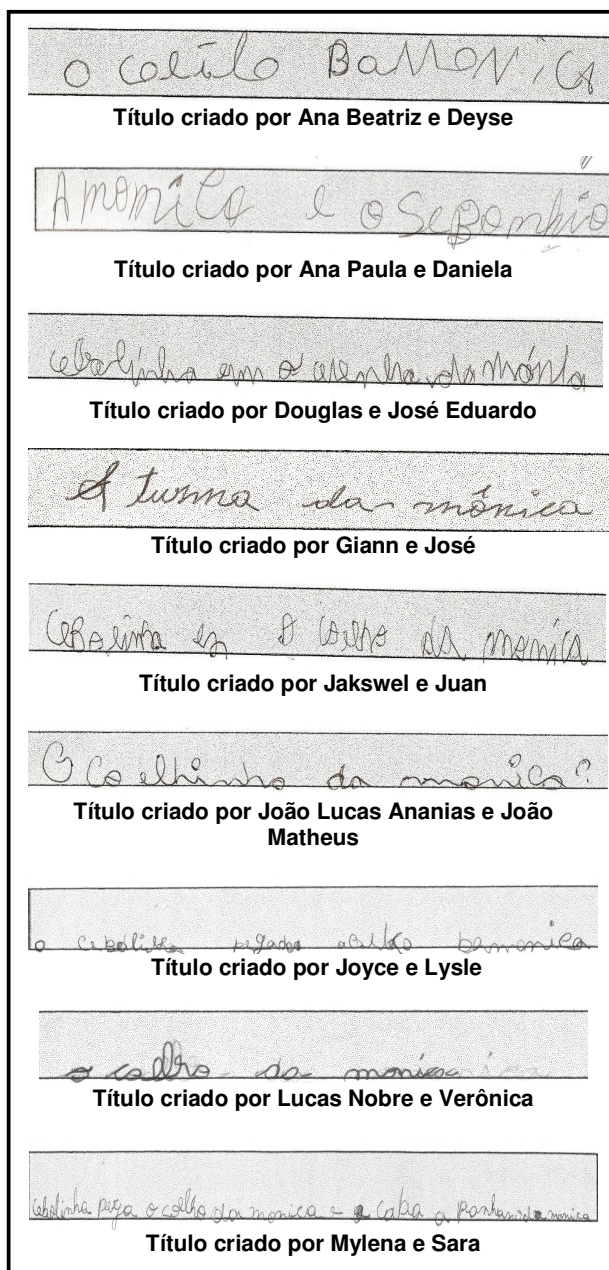 o coelilo BaMONiCA
Título criado por Ana Beatriz e Deyse
A moniCa e o SeBonhio
Título criado por Ana Paula e Daniela
cebolinha em o da mónta
Título criado por Douglas e José Eduardo
A turma da mônica
Título criado por Giann e José
CeBolinha en O coelho da monica
Título criado por Jakswel e Juan
O Coelhinho da monica?
Título criado por João Lucas Ananias e João
Matheus
o cebolinha pegado bamonica
Título criado por Joyce e Lysle
o coelho da monica
Título criado por Lucas Nobre e Verônica
cebolinha pega o coelho da monica e a caba a panhanida monica
Título criado por Mylena e Sara